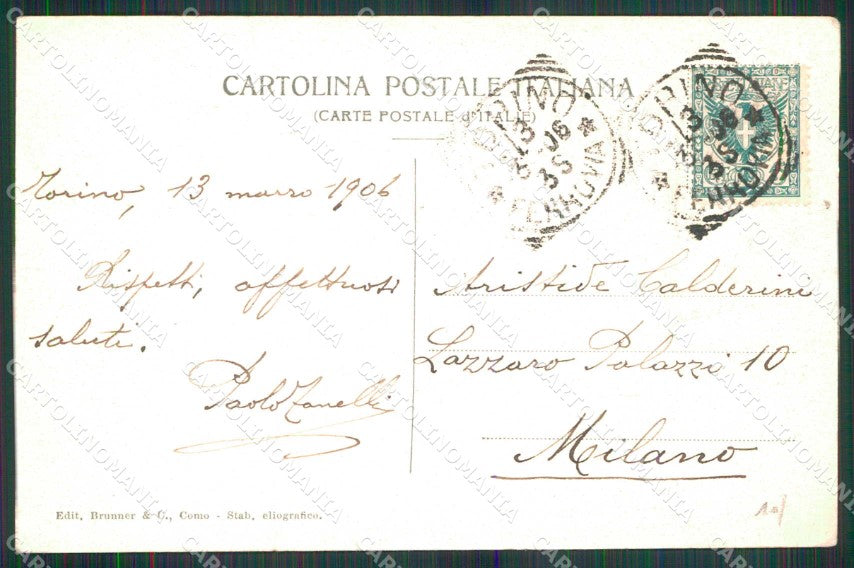 CARTOLINA POSTALE ITALIANA
(CARTE POSTALE d'ITALIE)
TORINO
13
3 06
3S
* FERROVIA *
TORINO
13
3 06
3S
* FERROVIA *
Torino, 13 marzo 1906
Rispetti, affettuosi
saluti.
Paolo Zanelli
Aristide Calderini
Lazzaro Palazzi 10
Milano
Edit. Brunner & C., Como - Stab. eliografico.
CARTOLINOMANIA